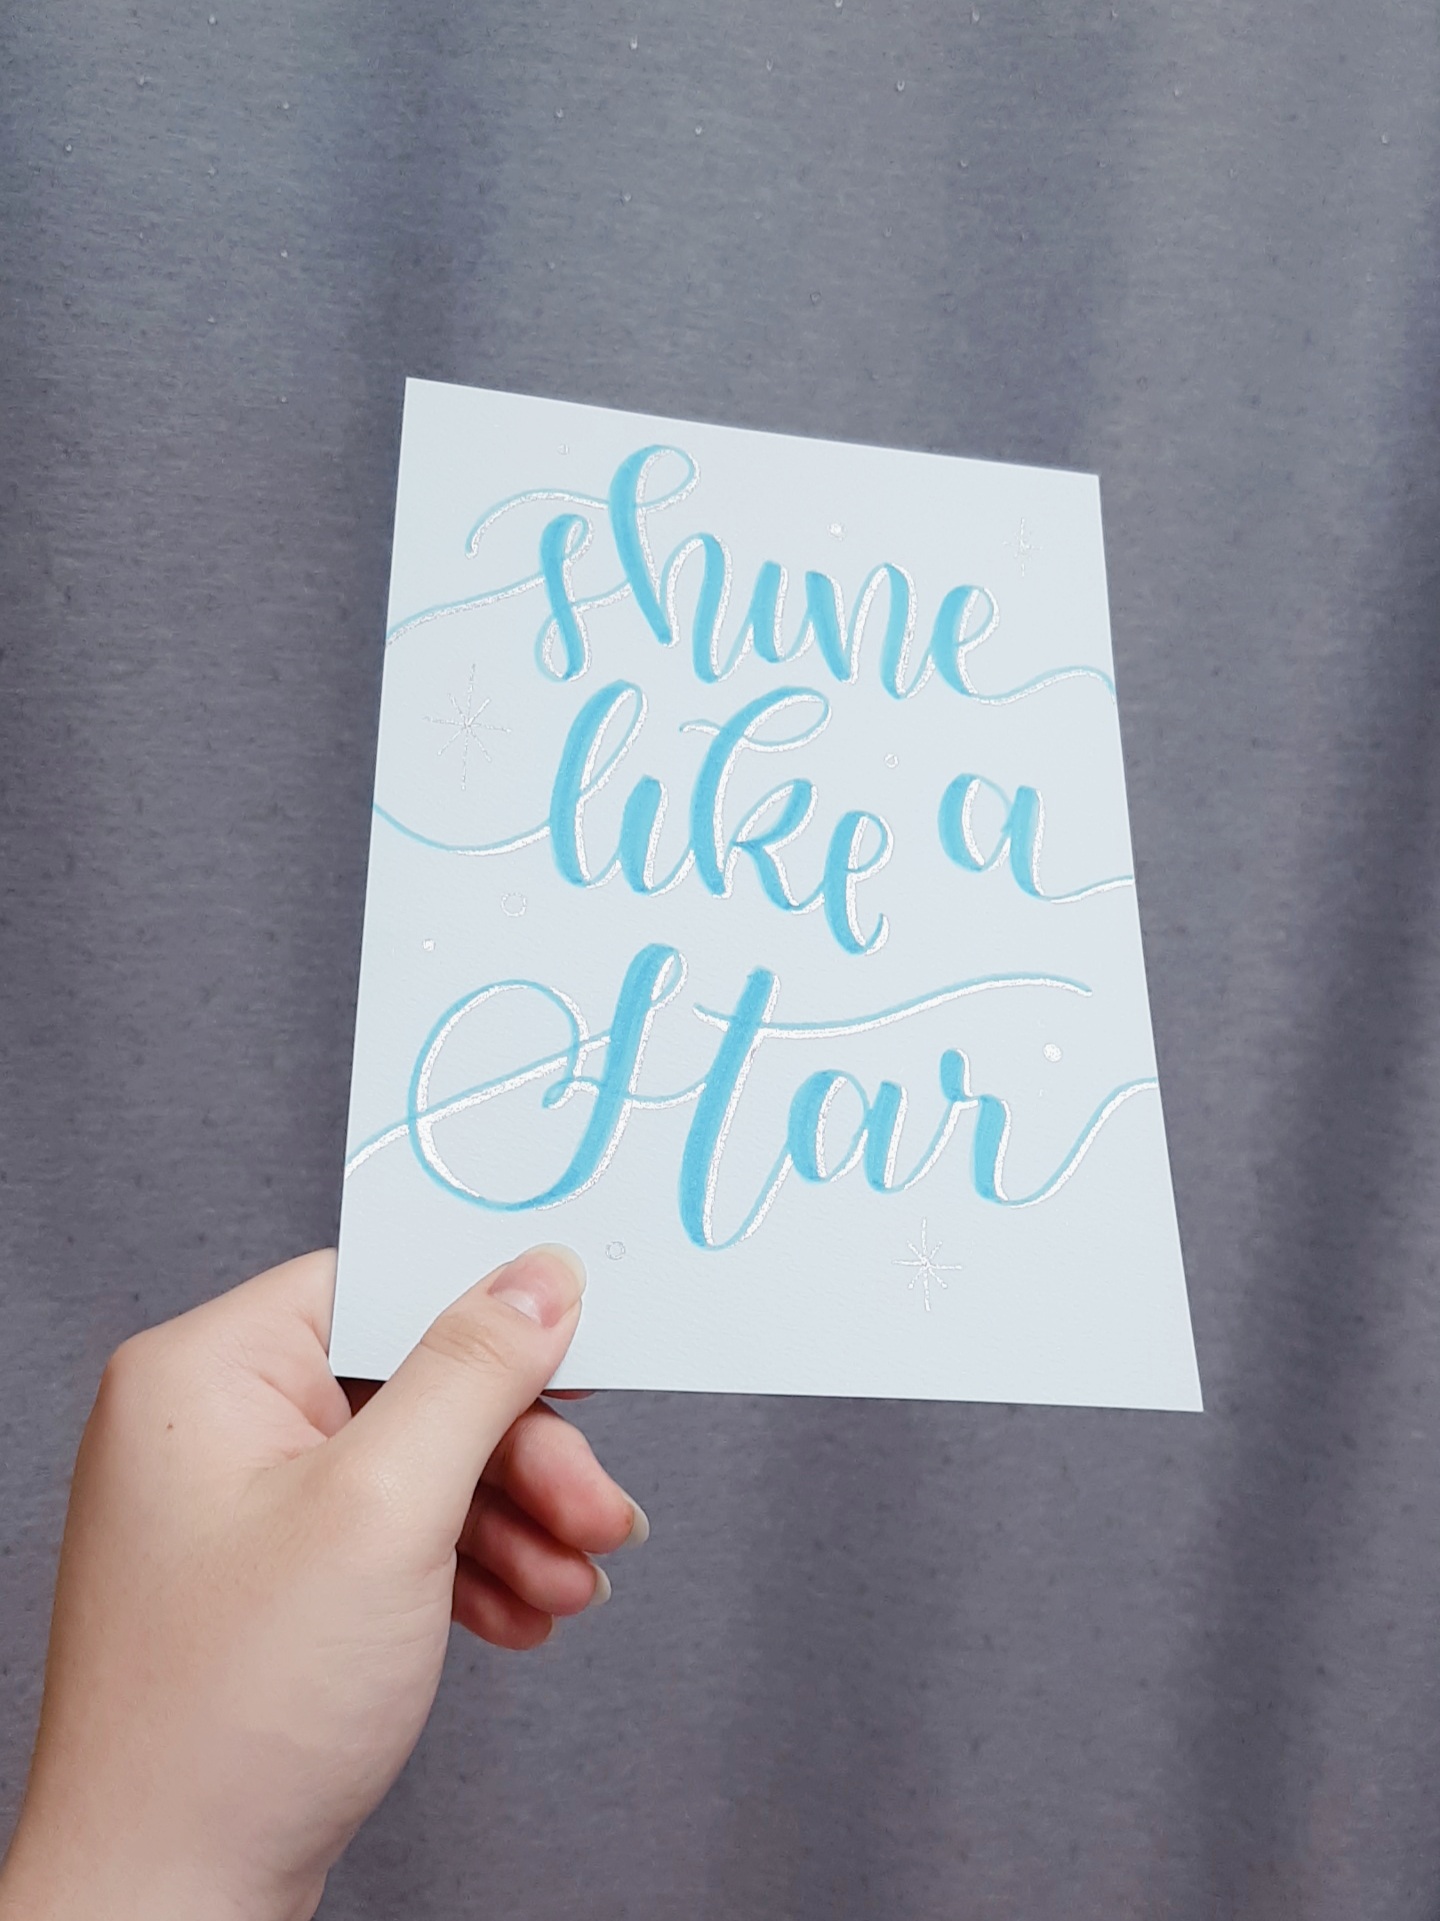 shine
like a
Star